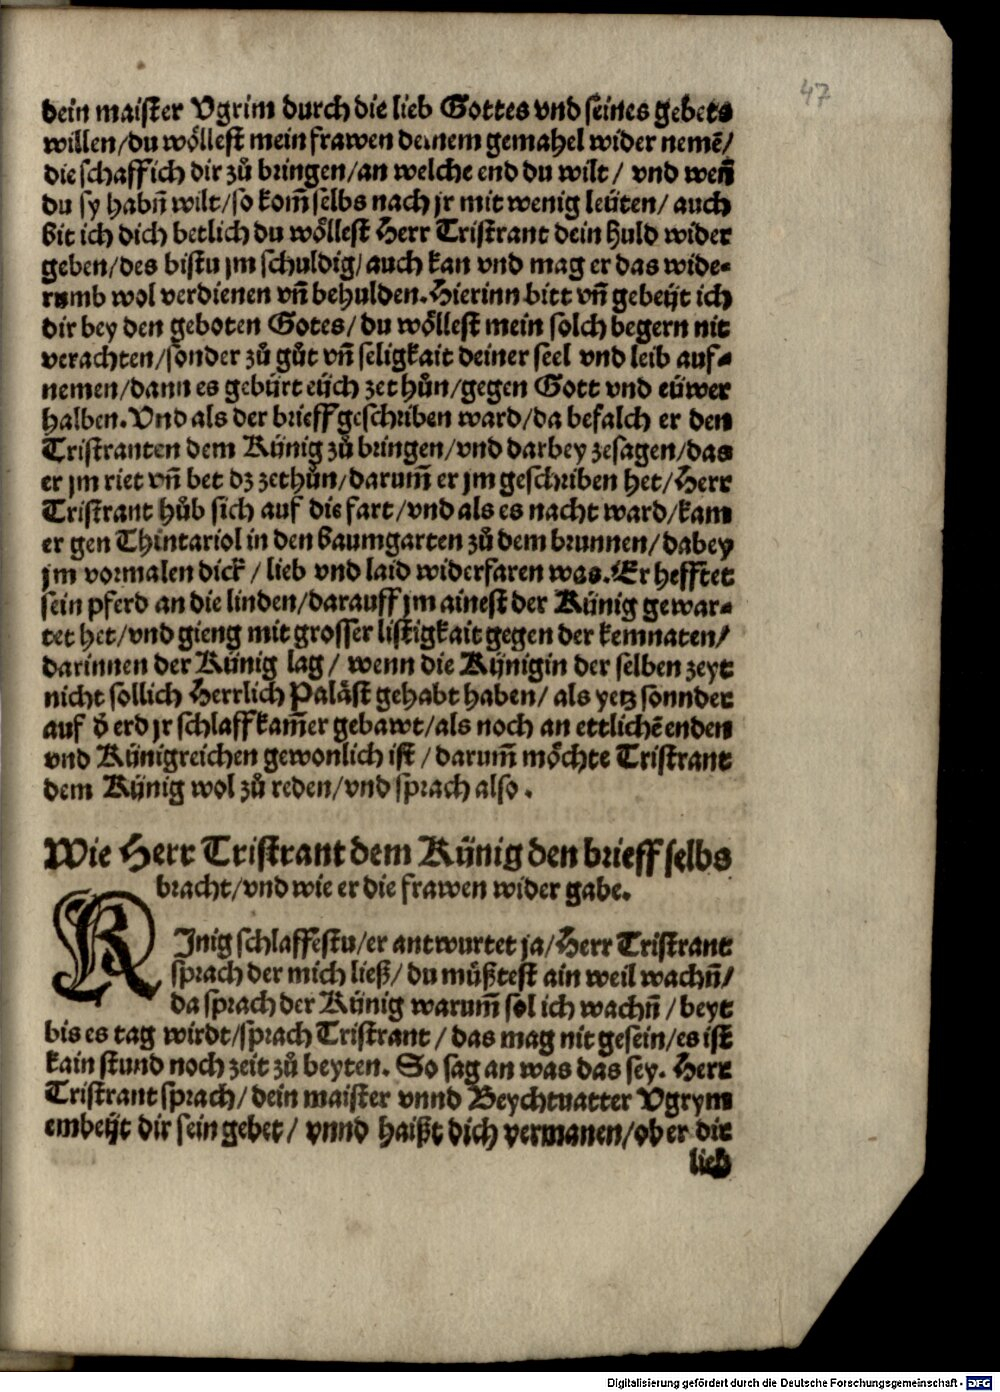 47
dein maister Vgrim durch die lieb Gottes vnd seines gebets
willen/du wöllest mein frawen deinem gemahel wider nemē/
die schaff ich dir zů bringen/an welche end du wilt/ vnd weñ
du sy habñ wilt/so kom̃ selbs nach jr mit wenig leüten/ auch
bit ich dich betlich du wöllest Herr Tristrant dein huld wider
geben/des bistu jm schuldig/auch kan vnd mag er das wide⸗
rumb wol verdienen vñ behulden. Hierinn bitt vñ gebeüt ich
dir bey den geboten Gotes/ du wöllest mein solch begern nit
verachten/sonder zů gůt vñ seligkait deiner seel vnd leib auf⸗
nemen/dann es gebürt eüch zethůn/gegen Gott vnd eüwer
halben. Vnd als der brieff geschriben ward/da befalch er den
Tristranten dem Künig zů bringen/vnd darbey zesagen/das
er jm riet vñ bet dz zethůn/darum̃ er jm geschriben het/Herr
Tristrant hůb sich auf die fart/vnd als es nacht ward/kam
er gen Thintariol in den baumgarten zů dem brunnen/dabey
jm vormalen dick / lieb vnd laid widerfaren was. Er hefftet
sein pferd an die linden/darauff jm ainest der Künig gewar⸗
tet het/vnd gieng mit grosser listigkait gegen der kemnaten/
darinnen der Künig lag/ wenn die Künigin der selben zeyt
nicht sollich Herrlich Paläst gehabt haben/ als yetz sonnder
auf d̄ erd jr schlaffkam̃er gebawt/als noch an ettlichē enden
vnd Künigreichen gewonlich ist / darum̃ möchte Tristrant
dem Künig wol zů reden/vnd sprach also.
Wie Herr Tristrant dem Künig den brieff selbs
bracht/vnd wie er die frawen wider gabe.
KJnig schlaffestu/er antwurtet ja/Herr Tristrant
sprach der mich ließ/ du müßtest ain weil wachñ/
da sprach der Künig warum̃ sol ich wachñ / beyt
bis es tag wirdt/sprach Tristrant / das mag nit gesein/es ist
kain stund noch zeit zů beyten. So sag an was das sey. Herr
Tristrant sprach/ dein maister vnnd Beychtuatter Vgrym
embeüt dir sein gebet/ vnnd haißt dich vermanen/ob er dir
lieb
Digitalisierung gefördert durch die Deutsche Forschungsgemeinschaft - DFG